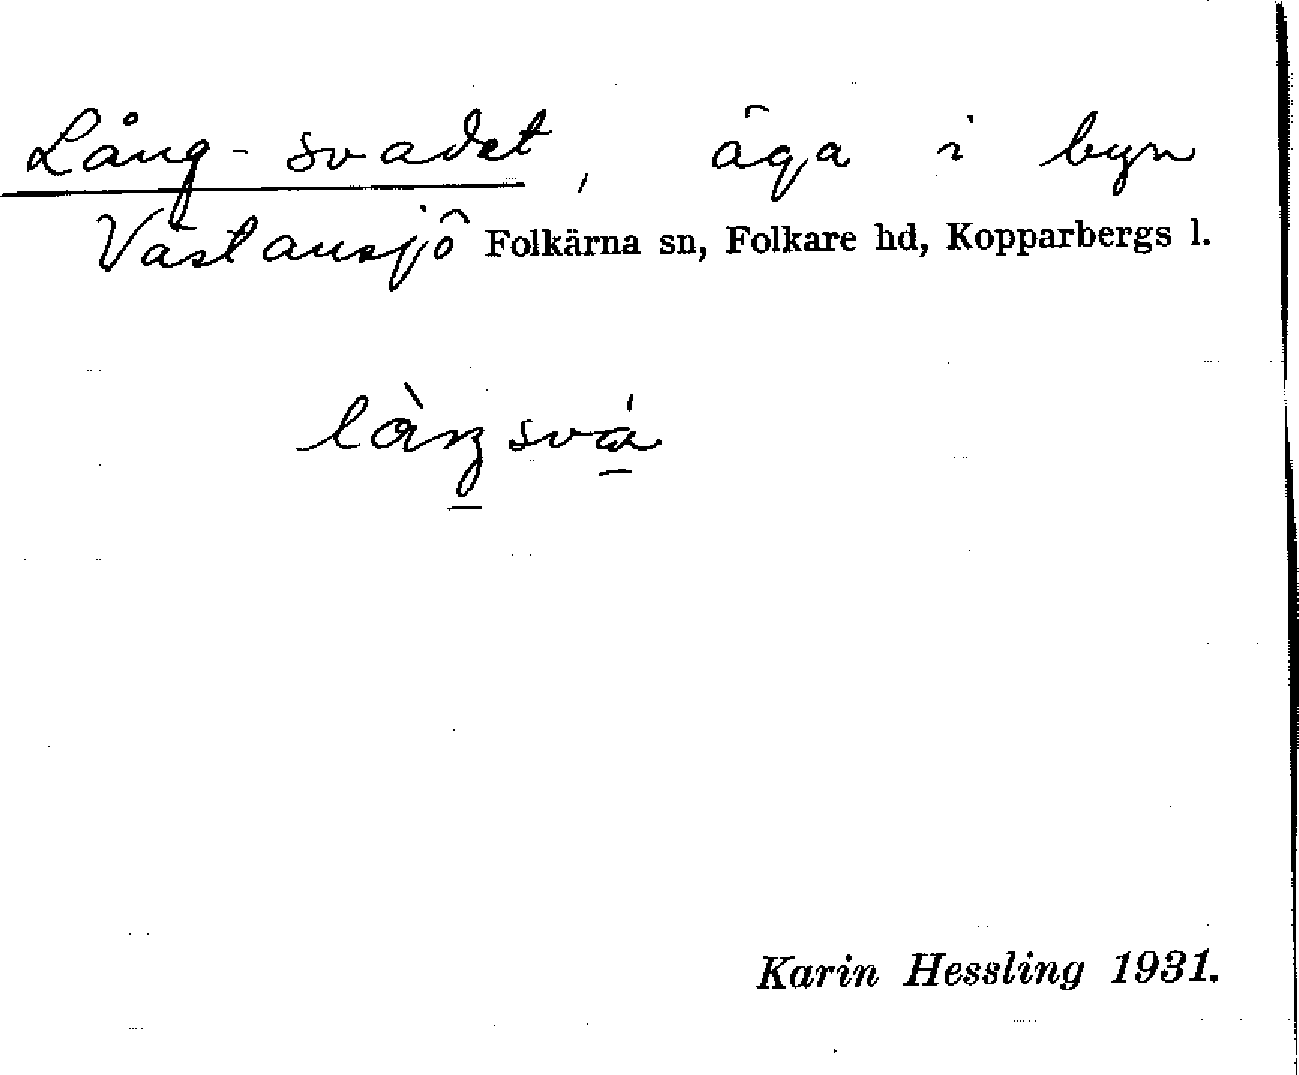 Lång-svadet, äga i byn
Västansjö Folkärna sn, Folkare hd, Kopparbergs l.
Karin Hessling 1931.